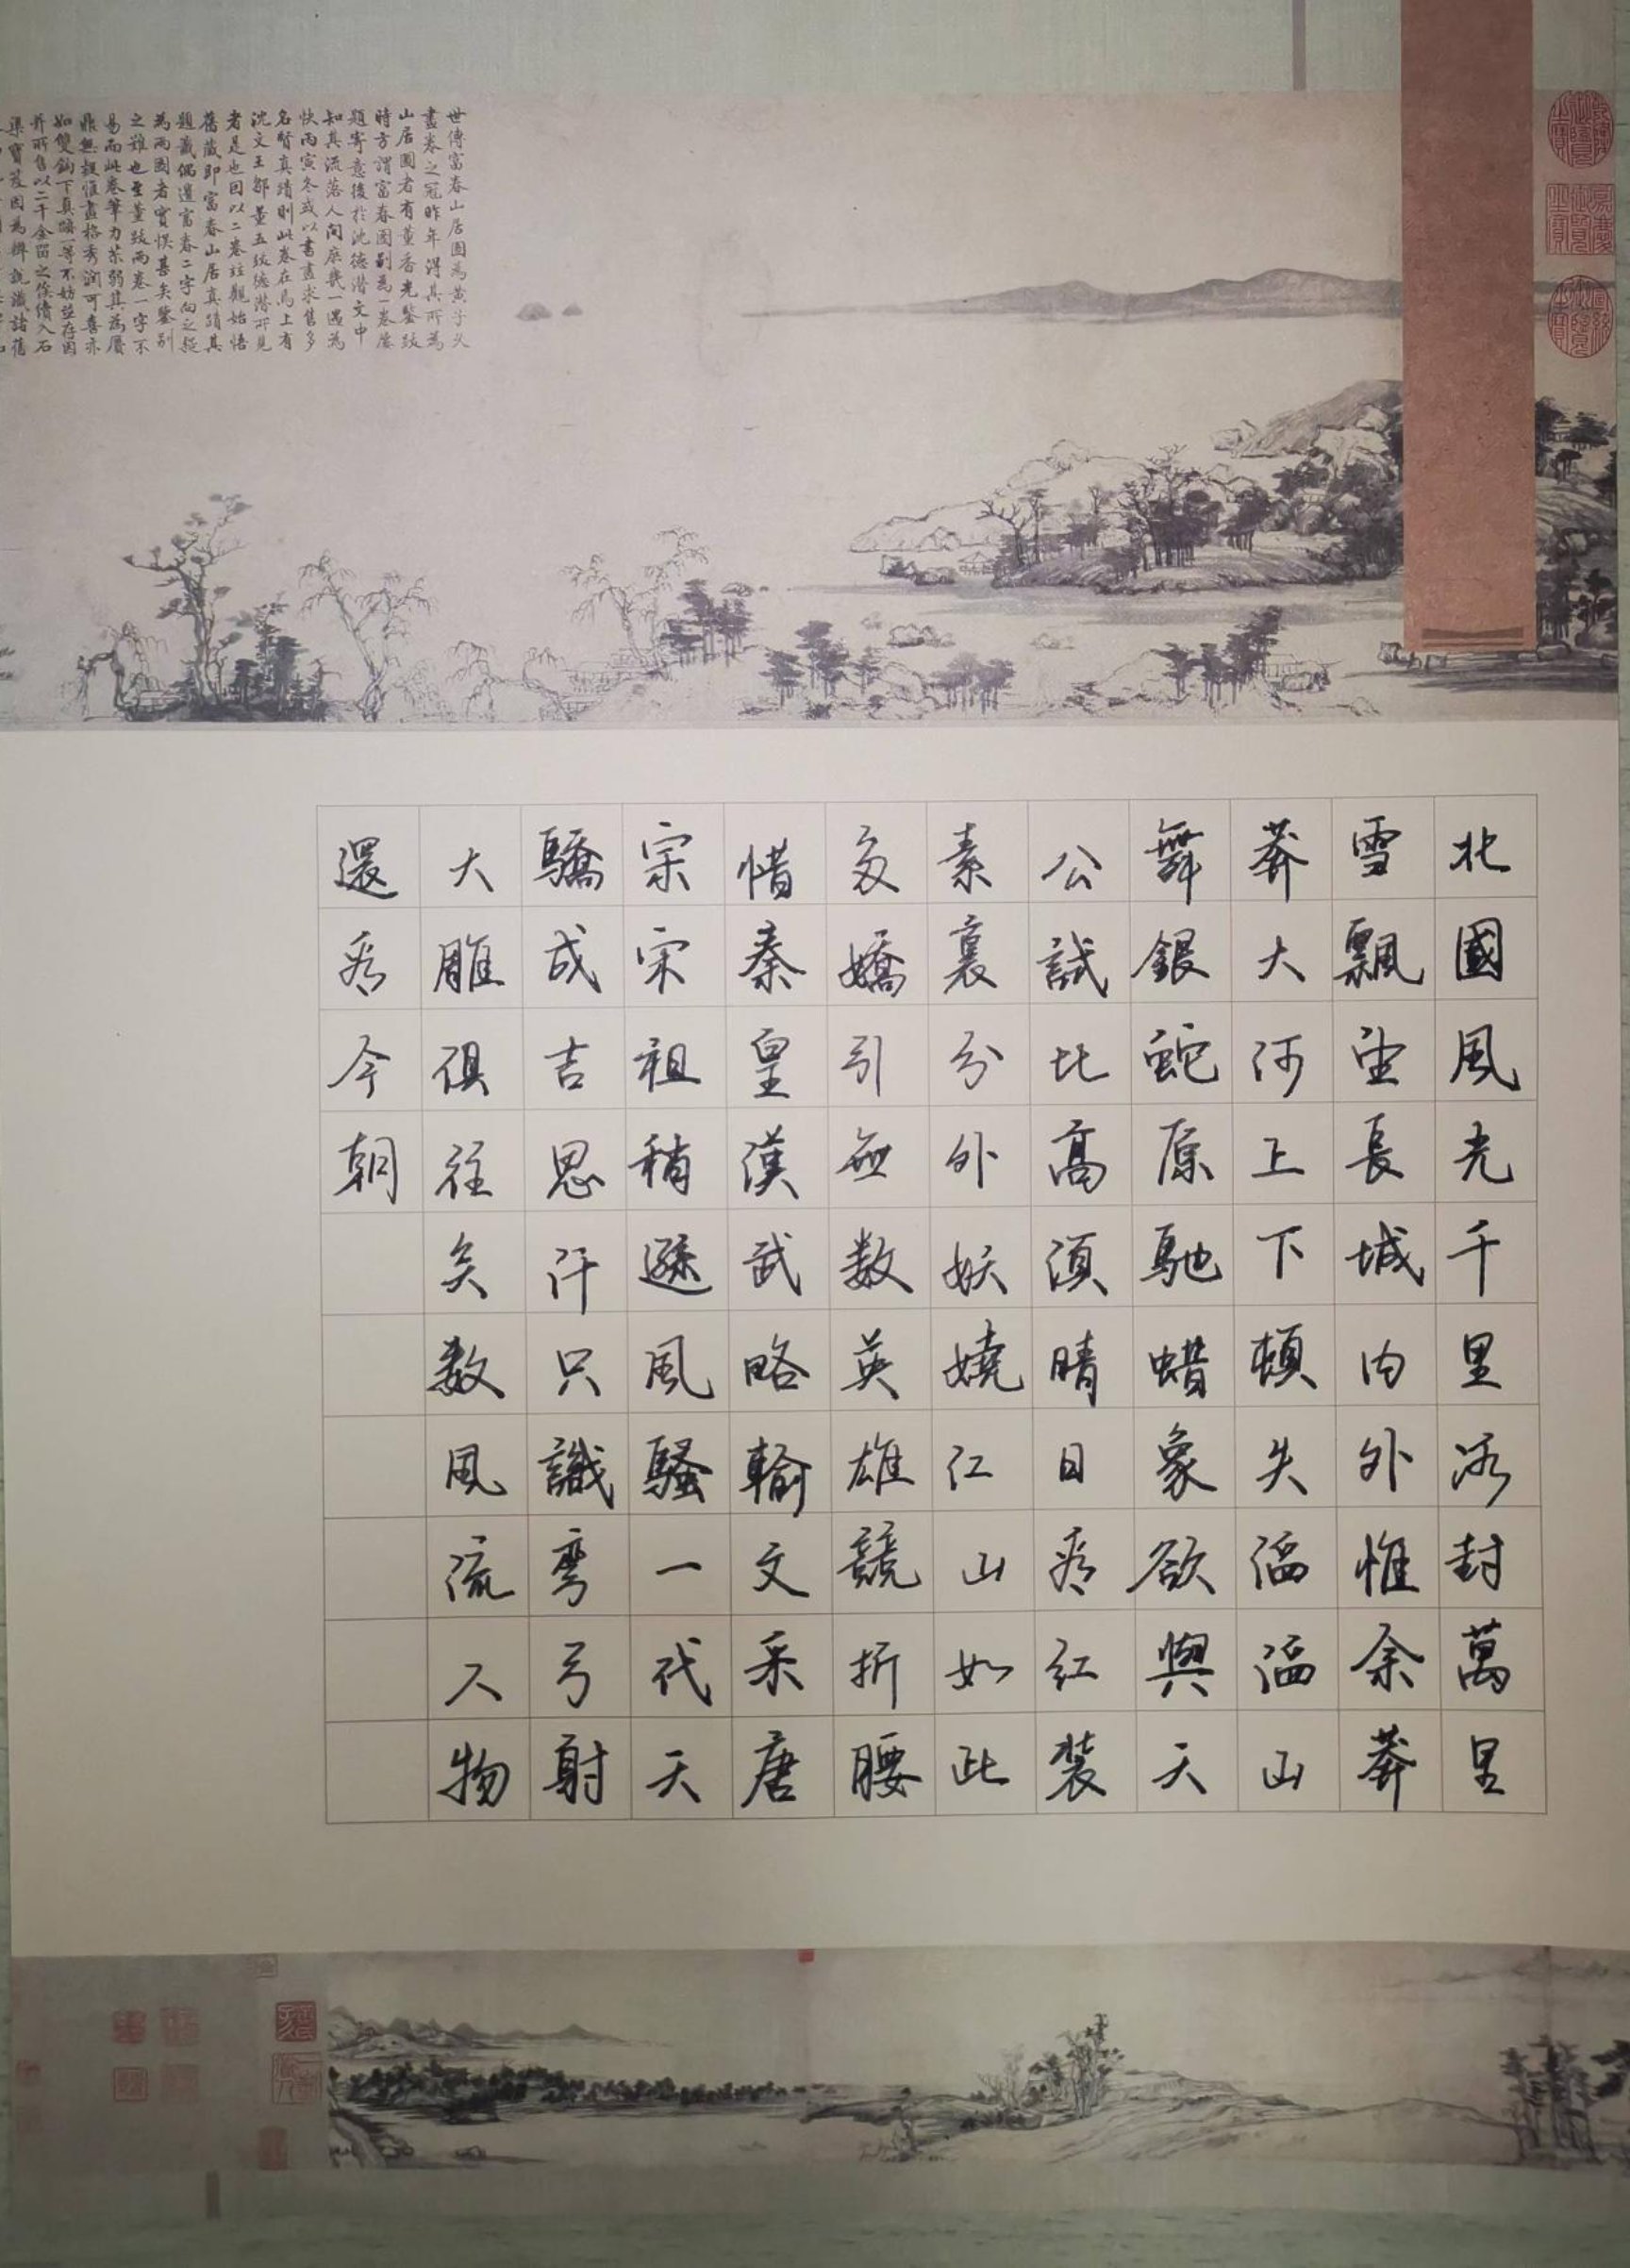 世傳富春山居圖為黃子久
畫卷之冠昨年得其所為
山居圖者有董香光鑒跋
時方謂富春圖別為一卷屢
題寄意後於沈德潛文中
知其流落人間庶幾一遇為
快丙寅冬或以書畫求售多
名賢真蹟則此卷在焉上有
沈文王鄒董五跋德潛所見
者是也因以二卷並觀始悟
舊藏即富春山居真蹟其
題籤偶遺富春二字向之疑
為兩圖者實悞甚矣鑒別
之難也至董跋兩卷一字不
易而此卷筆力苶弱其為贗
鼎無疑惟畫格秀潤可喜亦
如雙鉤下真蹟一等不妨並存因
并所售以二千金留之俾續入石
渠寶笈因為辨說識諸舊
北國風光千里冰封萬里
雪飄望長城內外惟余莽
莽大河上下頓失滔滔山
舞銀蛇原馳蜡象欲與天
公試比高須晴日看紅裝
素裹分外妖嬈江山如此
多嬌引無数英雄競折腰
惜秦皇漢武略輸文采唐
宗宋祖稍遜風騷一代天
驕成吉思汗只識弯弓射
大雕俱往矣数風流人物
還看今朝